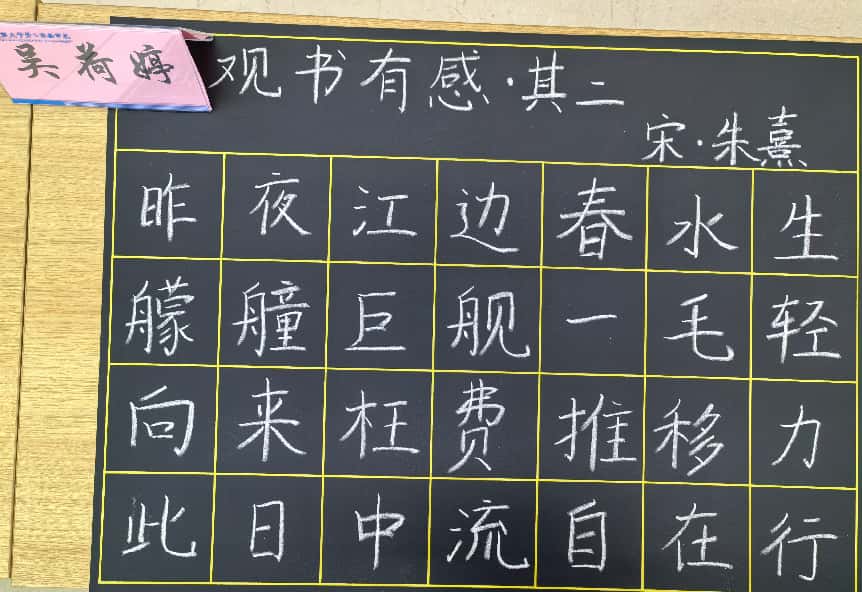 吴荷婷
观书有感·其二
宋·朱熹
昨夜江边春水生
艨艟巨舰一毛轻
向来枉费推移力
此日中流自在行